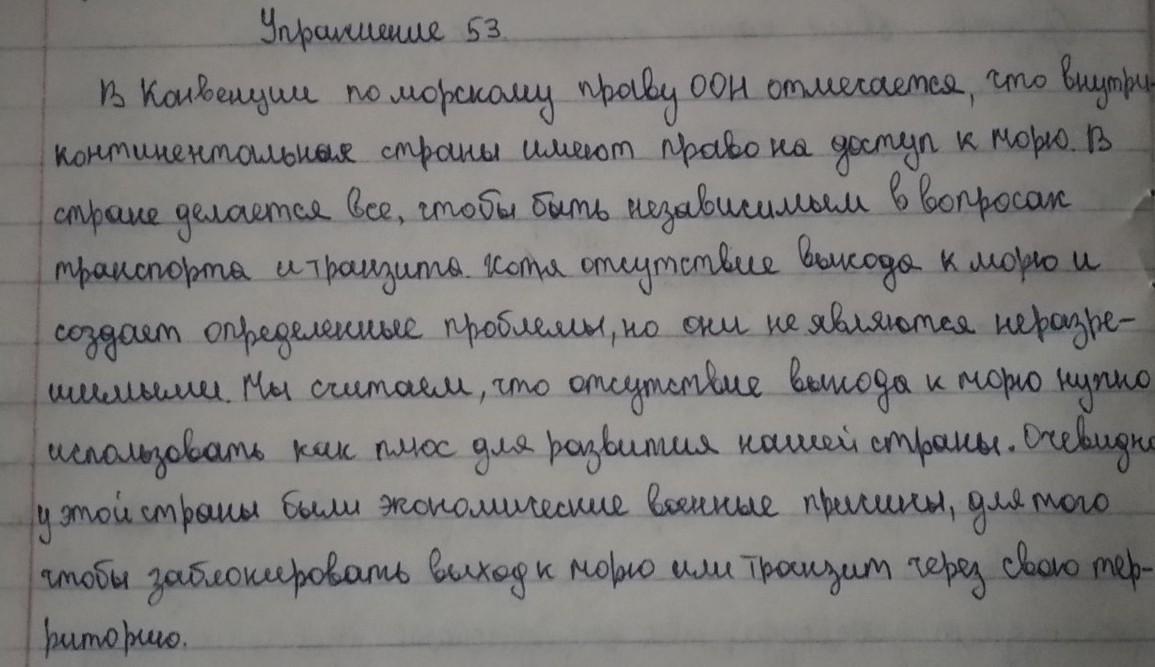 Упражнение 53.
В Конвенции по морскому праву ООН отмечается, что внутри-
континентальная страны имеют право на доступ к морю. В
стране делается все, чтобы быть независимым в вопросах
транспорта и транзита. Хотя отсутствие выхода к морю и
создает определенные проблемы, но они не являются неразре-
шимыми. Мы считаем, что отсутствие выхода к морю нужно
использовать как плюс для развития нашей страны. Очевидно
у этой страны были экономические военные причины, для того
чтобы заблокировать выход к морю или транзит через свою тер-
риторию.